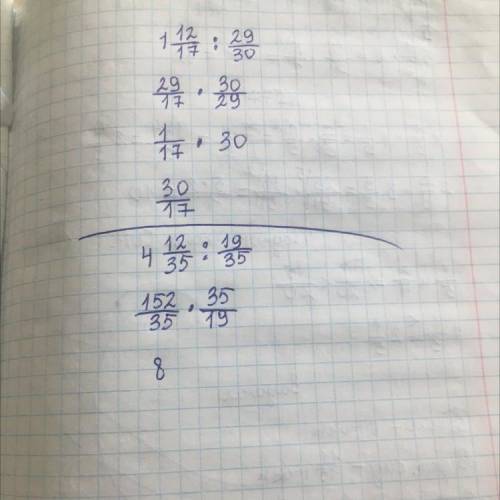 1 12/17 : 29/30
29/17 · 30/29
1/17 · 30
30/17
4 12/35 : 19/35
152/35 · 35/19
8